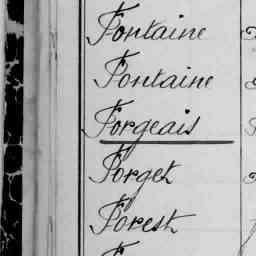 Fontaine
Fontaine
Forgeais
Forget
Forest